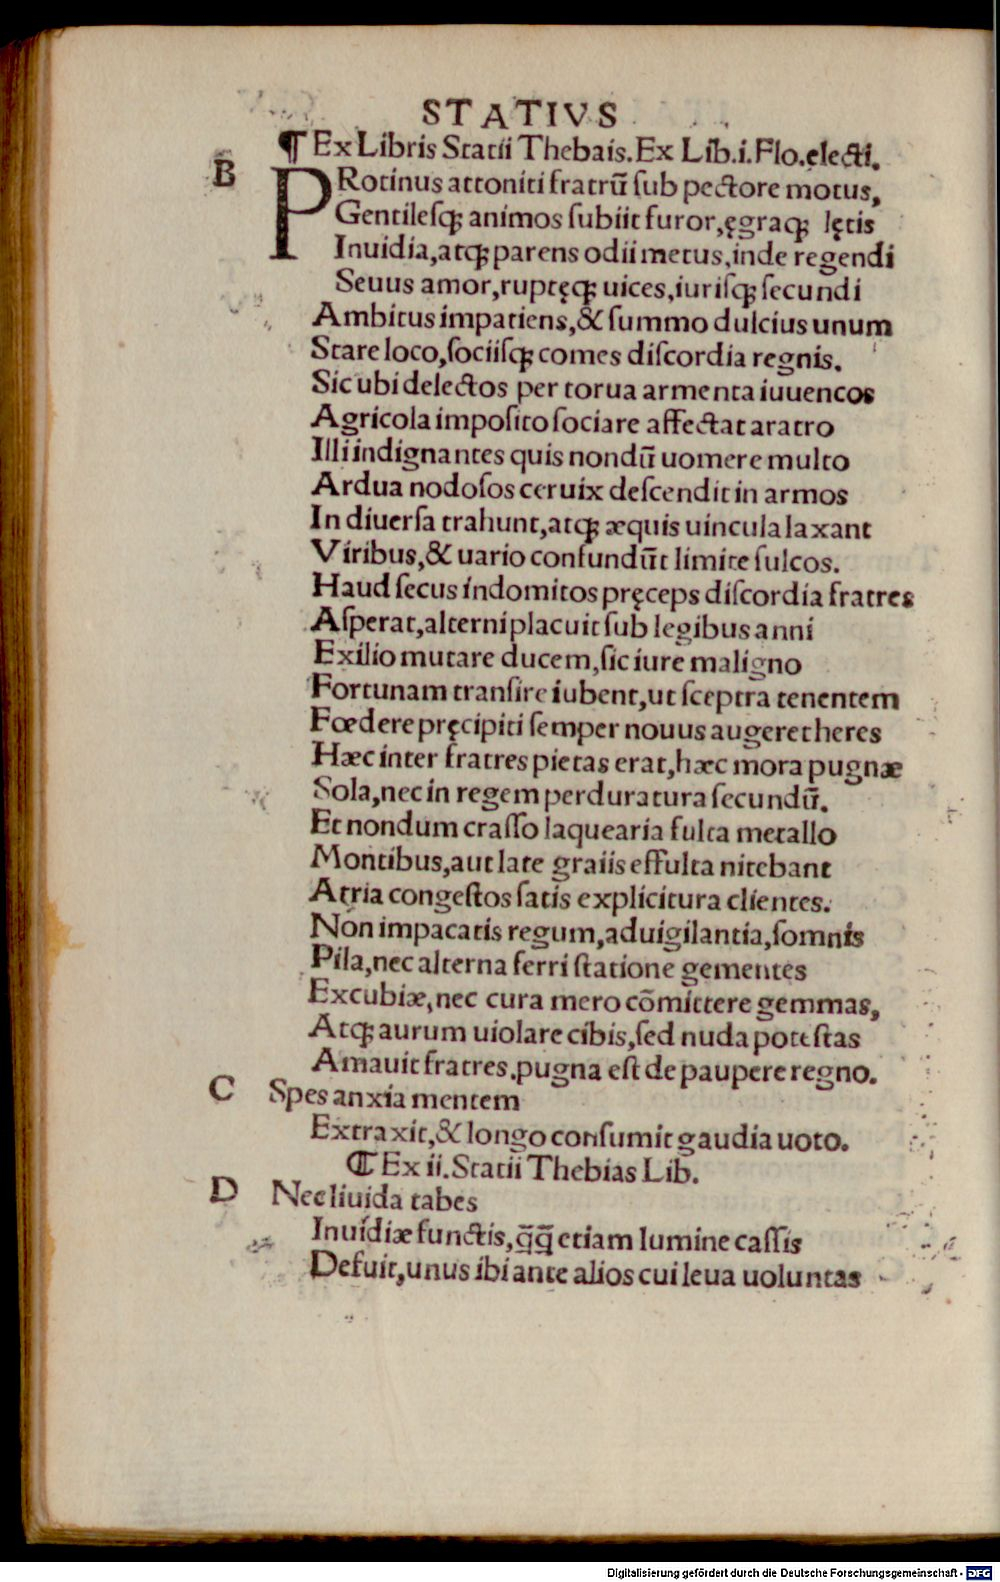 STATIVS
¶ Ex Libris Statii Thebais. Ex Lib. i. Flo. electi.
B
PRotinus attoniti fratrū ſub pectore motus,
Gentileſqꝫ animos ſubiit furor, ęgraqꝫ lętis
Inuidia, atqꝫ parens odii metus, inde regendi
Seuus amor, ruptęqꝫ uices, iuriſqꝫ ſecundi
Ambitus impatiens, & ſummo dulcius unum
Stare loco, ſociiſqꝫ comes diſcordia regnis.
Sic ubi delectos per torua armenta iuuencos
Agricola impoſito ſociare affectat aratro
Illi indignantes quis nondū uomere multo
Ardua nodoſos ceruix deſcendit in armos
In diuerſa trahunt, atqꝫ æquis uincula laxant
Viribus, & uario confundūt limite ſulcos.
Haud ſecus indomitos pręceps diſcordia fratres
Aſperat, alterni placuit ſub legibus anni
Exilio mutare ducem, ſic iure maligno
Fortunam tranſire iubent, ut ſceptra tenentem
Fœdere pręcipiti ſemper nouus augeret heres
Hæc inter fratres pietas erat, hæc mora pugnæ
Sola, nec in regem perduratura ſecundū.
Et nondum craſſo laquearia fulta metallo
Montibus, aut late graiis effulta nitebant
Atria congeſtos ſatis explicitura clientes.
Non impacatis regum, aduigilantia, ſomnis
Pila, nec alterna ferri ſtatione gementes
Excubiæ, nec cura mero cōmittere gemmas,
Atqꝫ aurum uiolare cibis, ſed nuda poteſtas
Amauit fratres. pugna eſt de paupere regno.
C Spes anxia mentem
Extraxit, & longo conſumit gaudia uoto.
¶ Ex ii. Statii Thebias Lib.
D Nec liuida tabes
Inuidiæ functis, q̄q̄ etiam lumine caſſis
Defuit, unus ibi ante alios cui leua uoluntas
Digitalisierung gefördert durch die Deutsche Forschungsgemeinschaft - DFG